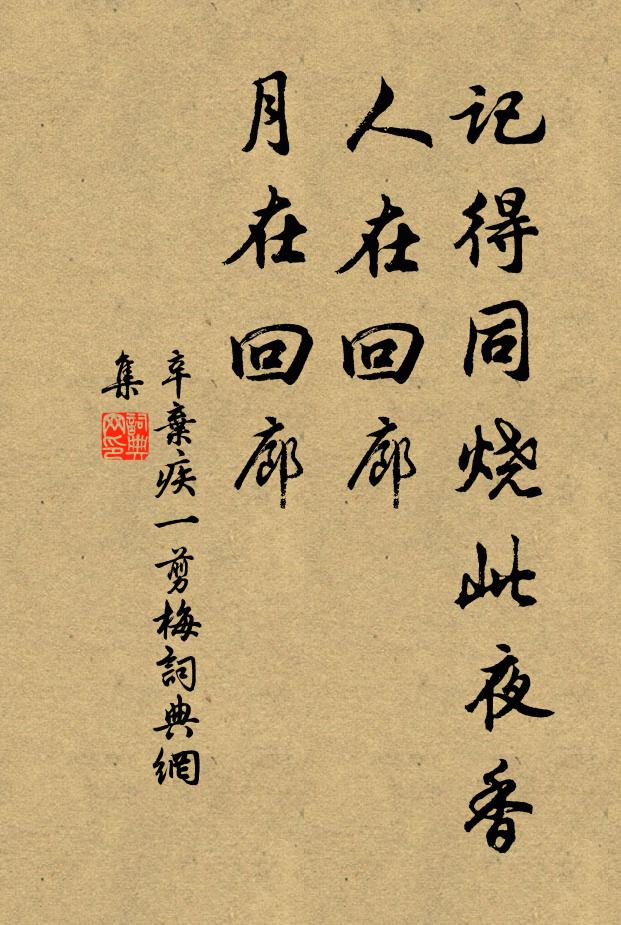 记得同烧此夜香
人在回廊
月在回廊
辛棄疾一剪梅詞典網
集
詞典網印